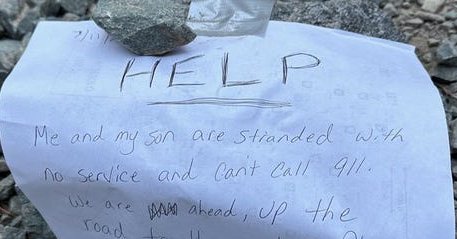 7/11/
HELP
Me and my son are stranded with
no service and can't call 911.
We are ahead, up the
road